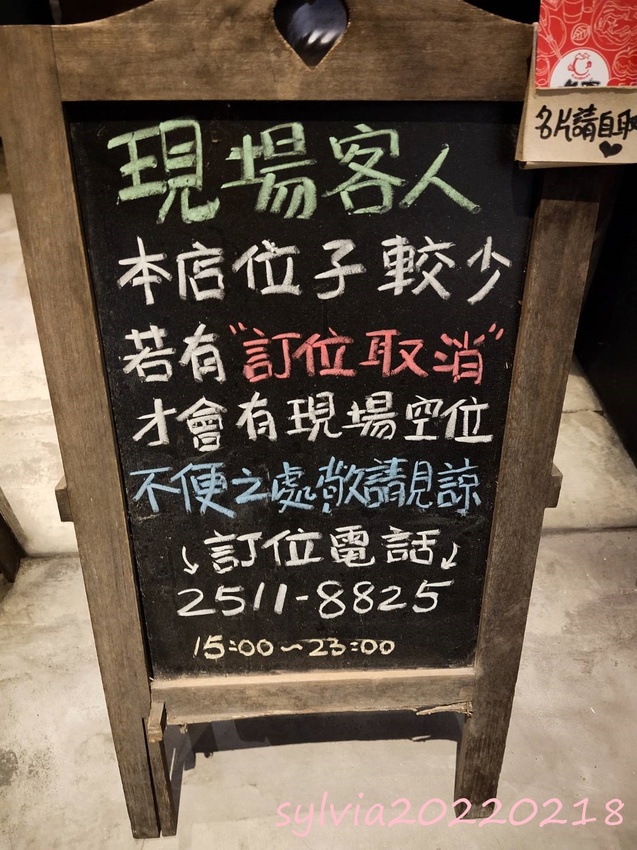 現場客人
本店位子較少
若有"訂位取消"
才會有現場空位
不便之處,敬請見諒
↓訂位電話↓
2511-8825
15:00~23:00
名片請自取
sylvia20220218